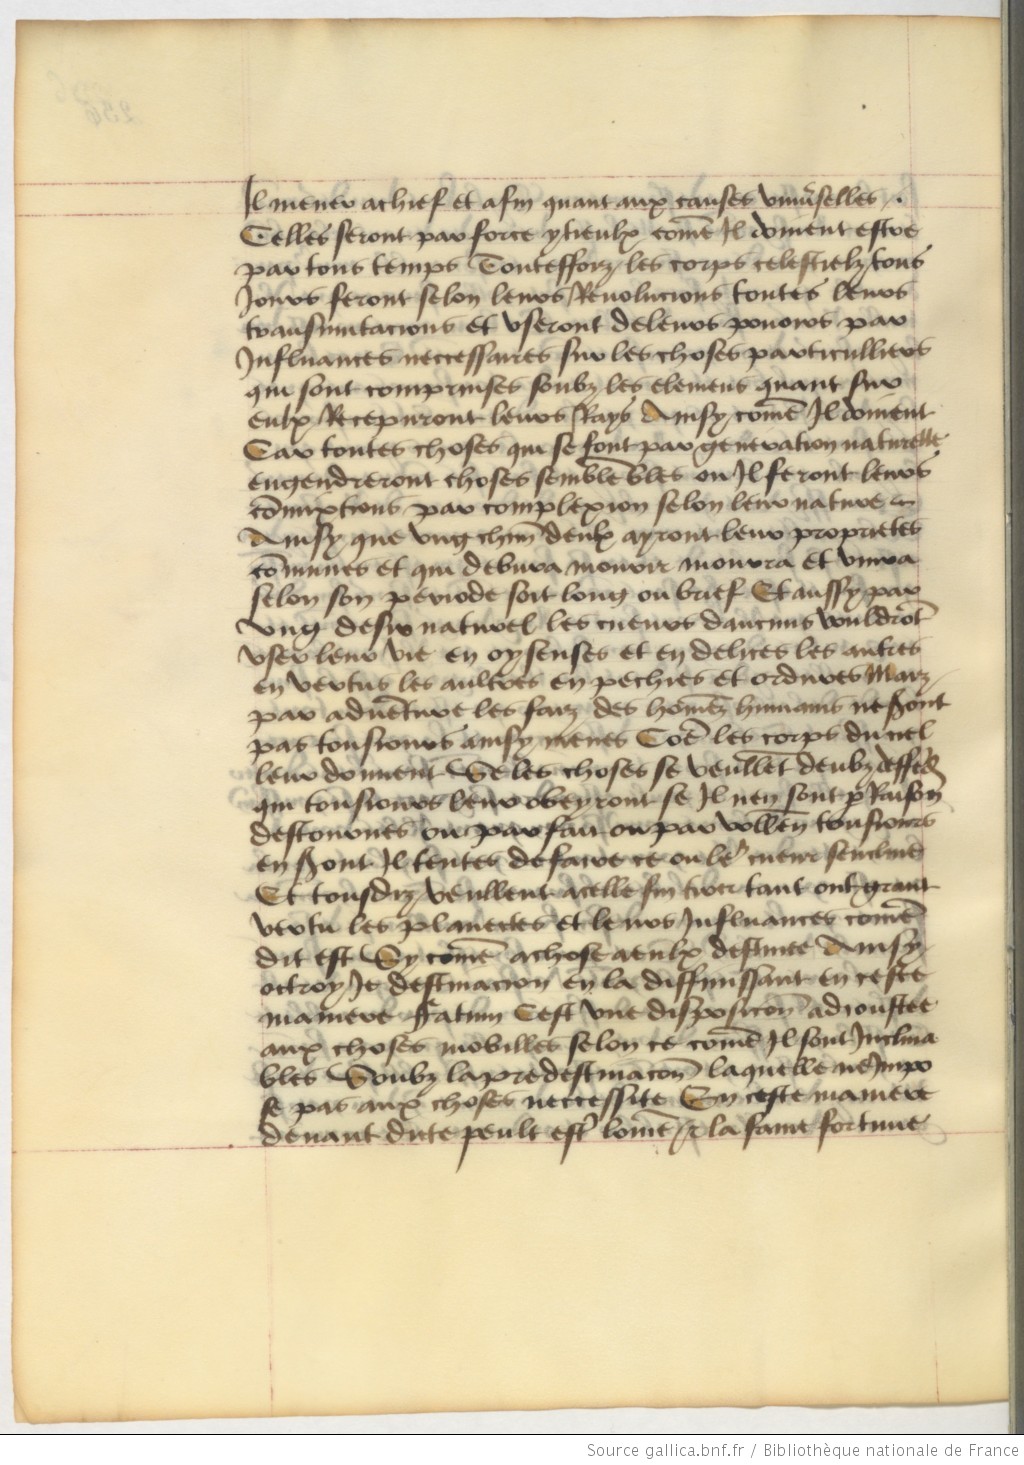 Il mener achief et afin quant aux causes univ̾selles .
Telles seront par force ytieulx com̄e Il doiuent estre
par tous temps Toutesfforz les corps celestielz tous
Jours feront selon leurs Reuolucions toutes leurs
transmutacions et vseront deleurs pouoirs par
Influances neccessaires sur les choses particulliers
qui sont comprinses soubz les elemens quant sur
eulx Recepuront leurs Rays Ainsy com̄e Il doiuent
Car toutes choses qui se font par generation naturelle
engendreront choses semblebles ou Il feront leurs
com̄ixtions par complexion selon leur nature
Ainsy que vng ch̄m deulx ayront leur proprietes
com̄unes et qui debura mourir mourra et viura
selon son periode soit long ou brief Et aussy par
vng desir naturel les cueurs daucuns vouldrōt
vser leur vie en oysenses et en delices les autres
en vertus les aultres en pechies et ordures Maiz
par aduēture les faiz des hom̄ez humains ne sont
pas tousiours ainsy menes Cōe les corps du ciel
leur donnent Se les choses se veullēt deulz
qui tousiours leur obeyront se Il nen sont p̱ Raison
destournes ou par fait ou par vollen̄ tousiours
en sont Il tentes defaire ce ou le᷑ cueur sencline
Et tousdiz veullent acelle fin tirer tant ont grant
vertu les planettes et leurs Influances com̄e
dit est Sy com̄e achose aeulx destinee Ainsy
octroy Je destinacion en la diffinissant en ceste
maniere Fatum Cest vne disposicōn adioustee
aux choses mobilles selon ce com̄e Il sont Inclina
bles Soubz la predestinacōn laquelle ne Impo
se pas aux choses neccessite En ceste maniere
deuant dite peult est᷑ lom̄e la fame fortune